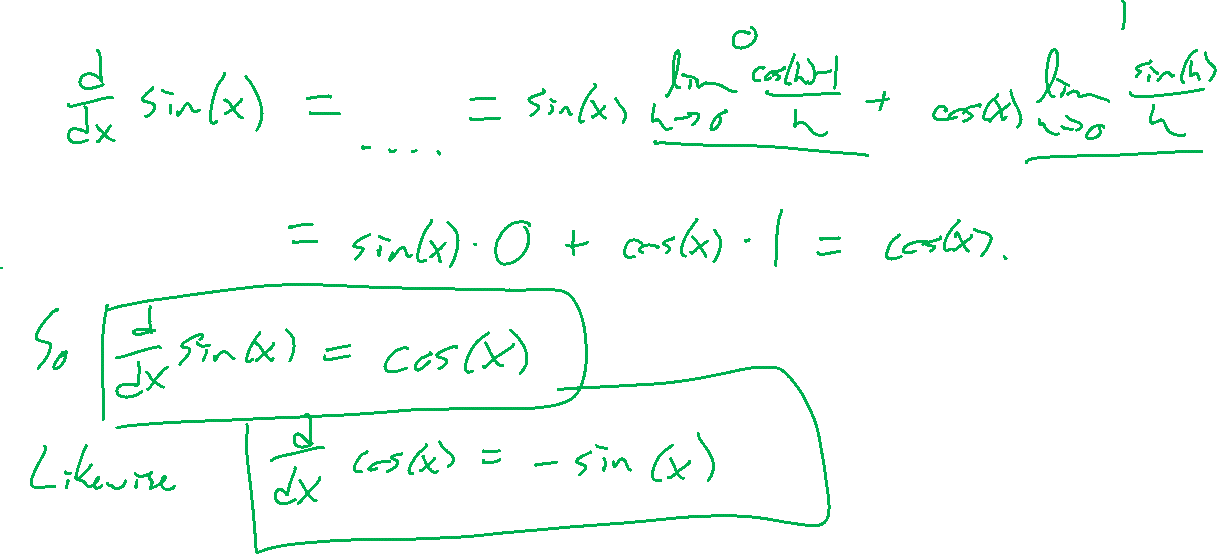 d/dx sin(x) = .... = sin(x) lim h→0 (cos(h)-1)/h 0 + cos(x) lim h→0 sin(h)/h 1
= sin(x) · 0 + cos(x) · 1 = cos(x).
So d/dx sin(x) = cos(x)
Likewise d/dx cos(x) = - sin(x)